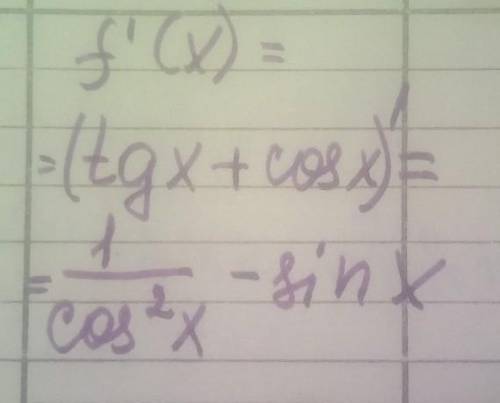 f'(x) =
= (tg x + cos x)' =
= 1/cos²x - sin x